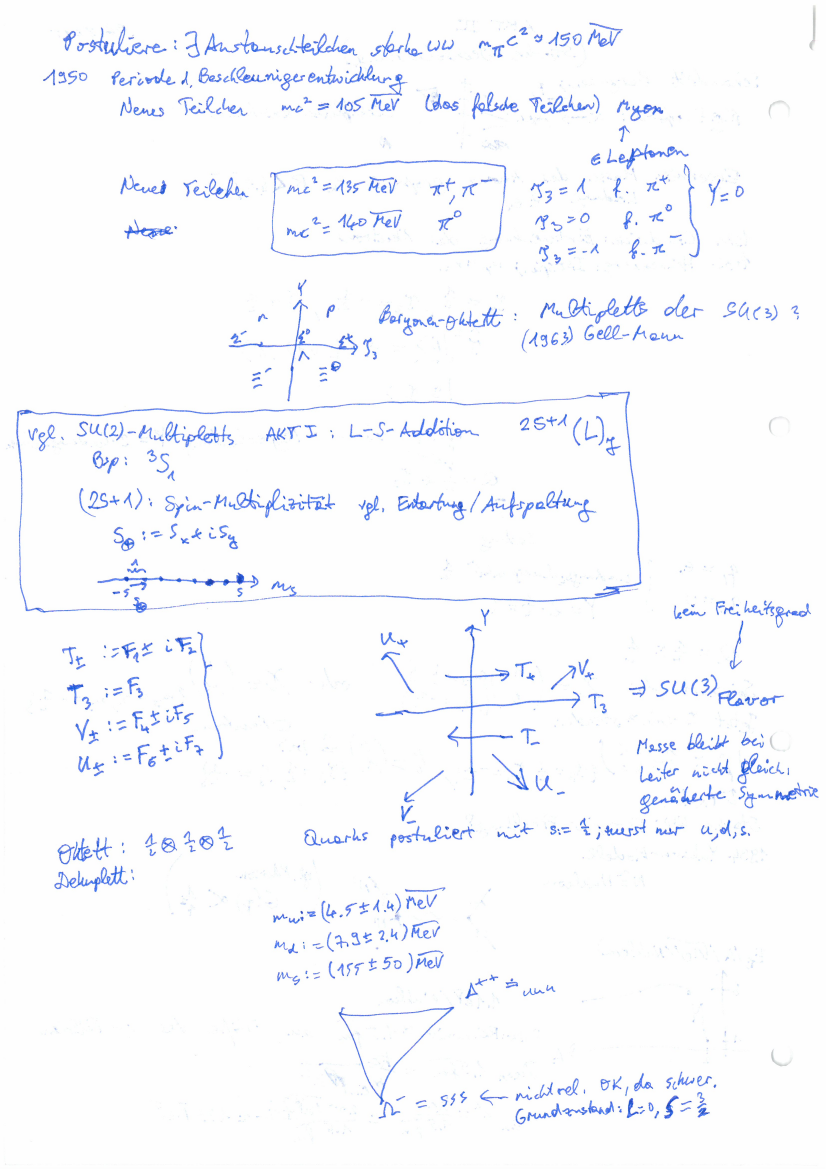 Postuliere: ∃ Austauschteilchen starke WW m_π c² ≈ 150 MeV
1950 Periode d. Beschleunigerentwicklung
Neues Teilchen mc² = 105 MeV (das falsche Teilchen) Myon
↑
∈ Leptonen
Neues Teilchen mc² = 135 MeV π⁺, π⁻ T₃ = 1 f. π⁺
mc² = 140 MeV π⁰ T₃ = 0 f. π⁰ Y = 0
T₃ = -1 f. π⁻
Y
n p
Σ⁻ Σ⁰ Σ⁺ T₃
Λ
Ξ⁻ Ξ⁰
Baryonen-Oktett: Multipletts der SU(3)?
(1963) Gell-Mann
vgl. SU(2)-Multipletts AKT I: L-S-Addition 2S+1 (L)_J
Bsp: ³S₁
(2S+1): Spin-Multiplizität vgl. Entartung/Aufspaltung
S_⊕ := S_x + i S_y
1
-s s m_s
S_⊕
T_± := F₁ ± i F₂
T₃ := F₃
V_± := F₄ ± i F₅
U_± := F₆ ± i F₇
Y
U₊ T₊ V₊
T₃
T₋
V₋ U₋
kein Freiheitsgrad
⇒ SU(3)_Flavor
Masse bleibt bei
Leiter nicht gleich,
genäherte Symmetrie
Oktett: ½ ⊗ ½ ⊗ ½
Quarks postuliert mit s := ½; zuerst nur u, d, s.
Dekuplett:
m_u := (4.5 ± 1.4) MeV
m_d := (7.9 ± 2.4) MeV
m_s := (155 ± 50) MeV
Δ⁺⁺ ≐ uuu
Ω⁻ = sss ← nichtrel. OK, da schwer.
Grundzustand: L=0, S = 3/2